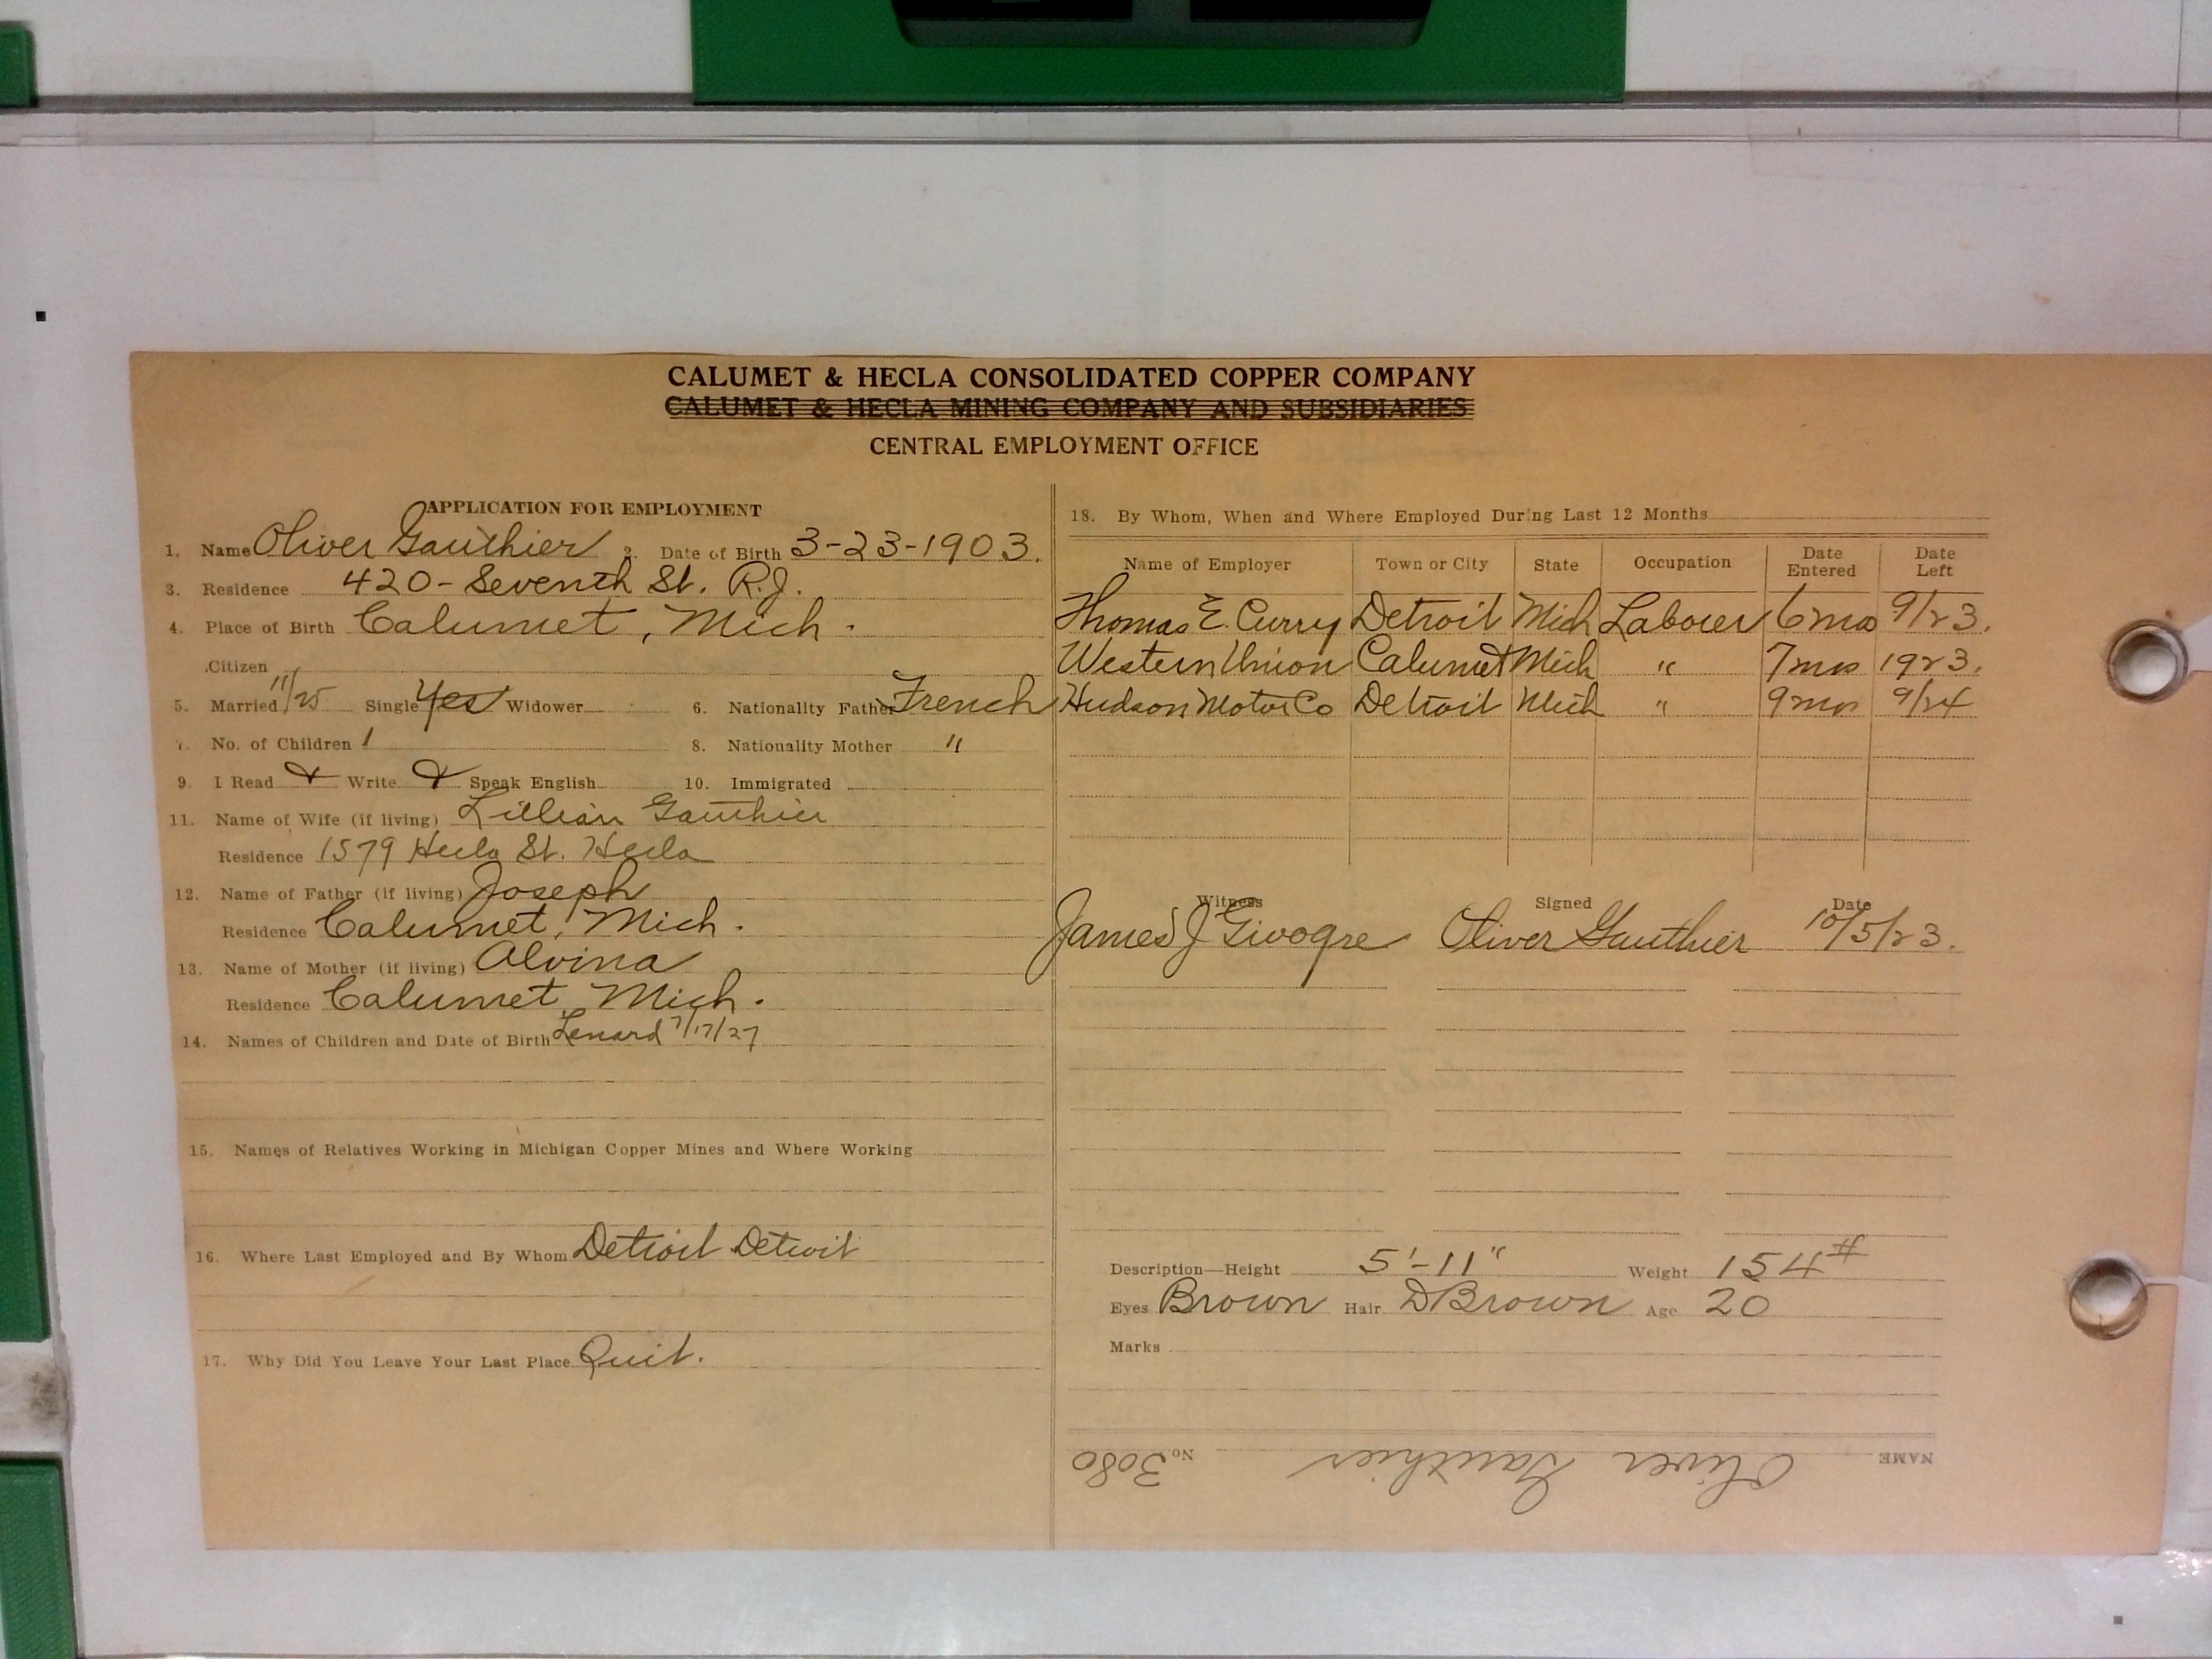 CALUMET & HECLA CONSOLIDATED COPPER COMPANY
CALUMET & HECLA MINING COMPANY AND SUBSIDIARIES
CENTRAL EMPLOYMENT OFFICE
APPLICATION FOR EMPLOYMENT
1. Name Oliver Gauthier 2. Date of Birth 3-23-1903.
3. Residence 420-Seventh St. R.J.
4. Place of Birth Calumet, Mich.
Citizen
5. Married 11/25 Single Yes Widower 6. Nationality Father French
7. No. of Children 1 8. Nationality Mother "
9. I Read & Write & Speak English 10. Immigrated
11. Name of Wife (if living) Lillian Gauthier
Residence 1579 Hecla St. Hecla
12. Name of Father (if living) Joseph
Residence Calumet, Mich.
13. Name of Mother (if living) Alvina
Residence Calumet, Mich.
14. Names of Children and Date of Birth Lenard 7/17/27
15. Names of Relatives Working in Michigan Copper Mines and Where Working
16. Where Last Employed and By Whom Detroit Detroit
17. Why Did You Leave Your Last Place Quit.
18. By Whom, When and Where Employed During Last 12 Months
Name of Employer Town or City State Occupation Date Entered Date Left
Thomas E. Curry Detroit Mich Laborer 6 mos 9/23.
Western Union Calumet Mich " 7 mos 1923.
Hudson Motor Co Detroit Mich " 9 mos 9/24
Witness Signed Date
James J Oliver Gauthier 10/5/23.
Description—Height 5'-11" Weight 154#
Eyes Brown Hair D Brown Age 20
Marks
NAME Oliver Gauthier No. 3080